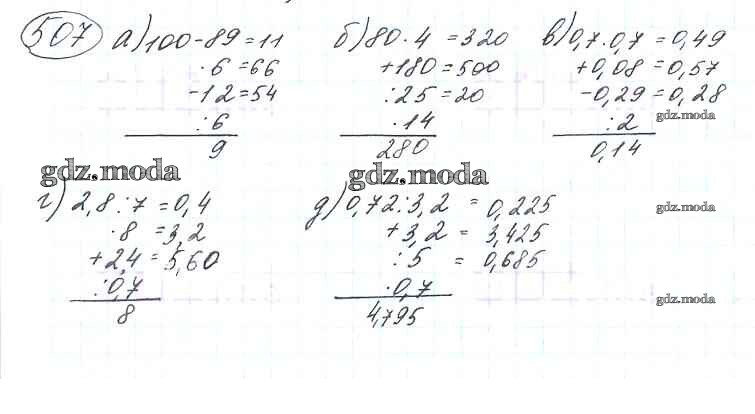 507 а) 100-89=11 б) 80·4=320 в) 0,7·0,7=0,49
·6=66 +180=500 +0,08=0,57
-12=54 :25=20 -0,29=0,28
gdz.moda
:6 ·14 :2
9 280 0,14
gdz.moda gdz.moda
г) 2,8:7=0,4 д) 0,72:3,2=0,225 gdz.moda
·8=3,2 +3,2=3,425
+2,4=5,60 :5=0,685 gdz.moda
:0,7 ·0,7 gdz.moda
8 4,795